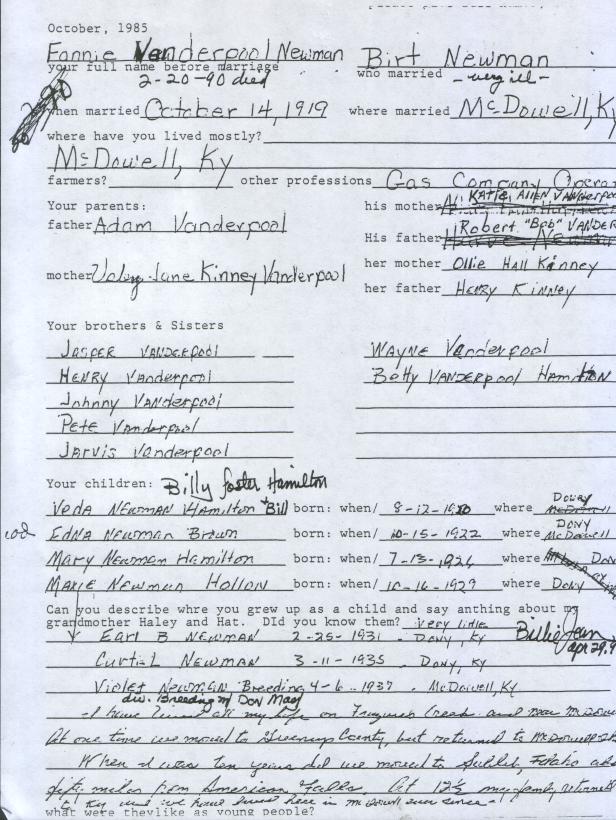 October, 1985
Fannie Vanderpool Newman Birt Newman
your full name before marriage who married -very ill-
2-20-90 died
when married October 14, 1919 where married McDowell, Ky
where have you lived mostly?
McDowell, Ky
farmers? other professions Gas Company Opera
Your parents: his mother KATIE ALLEN VANderpoo
father Adam Vanderpool Robert "Bob" VANDER
His father
mother Jane Kinney Vanderpool her mother Ollie Hall Kinney
her father Henry Kinney
Your brothers & Sisters
JASPER VANDERpool WAYNE Vanderpool
HENRY Vanderpool Betty VANDERpool Hamilton
Johnny VANDERpool
Pete Vanderpool
JARVIS Vanderpool
Your children: Billy foster Hamilton
Veda NEWMAN HAMILTON + Bill born: when/ 8-12-1920 where Dony McDowell
EdNA Newman Brown born: when/ 10-15-1922 where DONY McDowell
Mary Newman Hamilton born: when/ 7-13-1926 where Dony
MAXIE Newman Hollon born: when/ 10-16-1929 where Dony
Can you describe whre you grew up as a child and say anthing about my
grandmother Haley and Hat. Did you know them? very little
Earl B NEWMAN 2-25-1931 . Dony, Ky Billie Jean
Curtis L NEWMAN 3-11-1935 . Dony, Ky apr 29, 9
Violet Newman Breeding 4-6-1937 . McDowell, Ky
div. Breeding m Don May
I have lived all my life on Creek and near McDow
At one time we moved to Greenup County, but returned to McDowell
When I was ten years old we moved to Idaho
fifty miles from American Falls. At 12½ my family returned
to Ky and we have lived here in McDowell ever since-
what were theylike as young people?